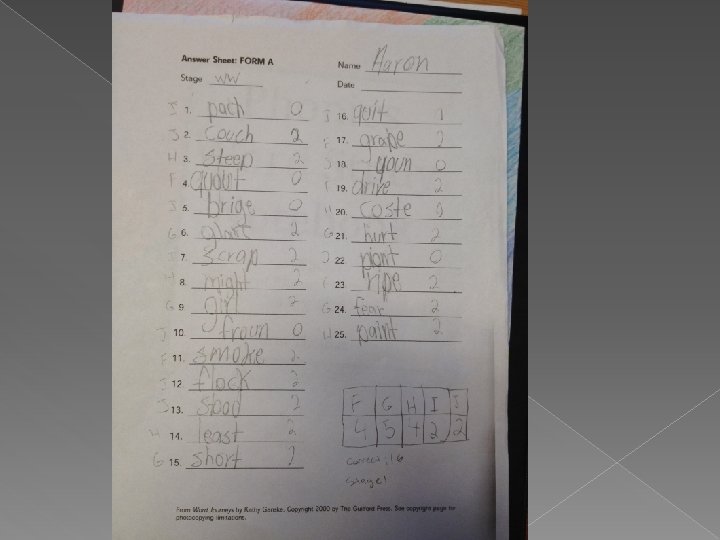 Answer Sheet: FORM A
Name Aaron
Stage WW
Date
J 1. pach 0
J 2. couch 2
H 3. steep 2
F 4. 0
J 5. brige 0
G 6. 2
I 7. scrap 2
H 8. might 2
G 9. girl 2
J 10. froun 0
F 11. smoke 2
12. flock 2
13. 2
H 14. least 2
G 15. short 2
J 16. quit
F 17. grape 2
18. youn 0
F 19. drive 2
H 20. coste
G 21. hurt 2
J 22. 0
23. ripe 2
G 24. fear 2
H 25. paint 2
F G H I J
4 5 4 2 2
correct: 16
Stage:
From Word Journeys by Kathy Ganske. Copyright 2000 by The Guilford Press. See copyright page for
photocopying limitations.